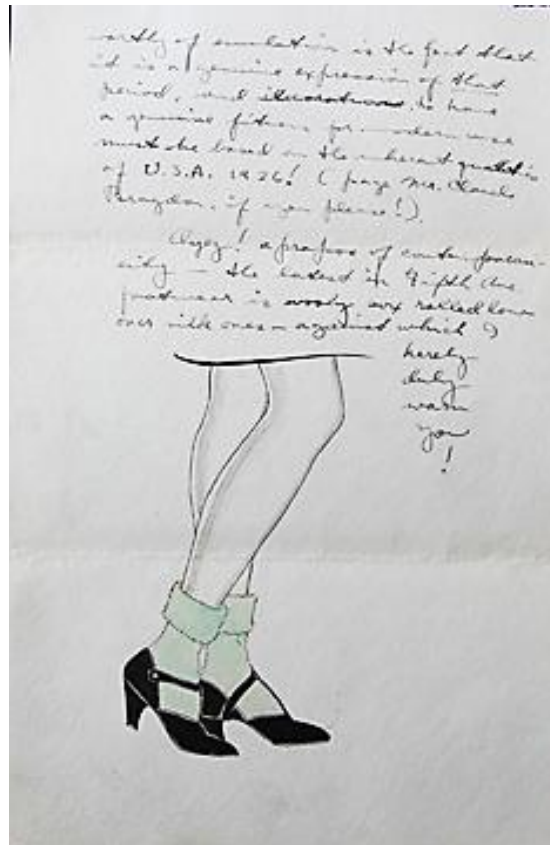 of emulation is the fact that
it is a genuine expression of that
period, and to have
a genuine fitness for modern use
must be based on the inherent qualities
of U.S.A. 1926! (page Mr. Claude
Bragdon, if you please!).
apropos of contemporan-
eity — the latest in Fifth Ave
footwear is wooly sox rolled low
over silk ones — against which I
hereby
duly
warn
you
!